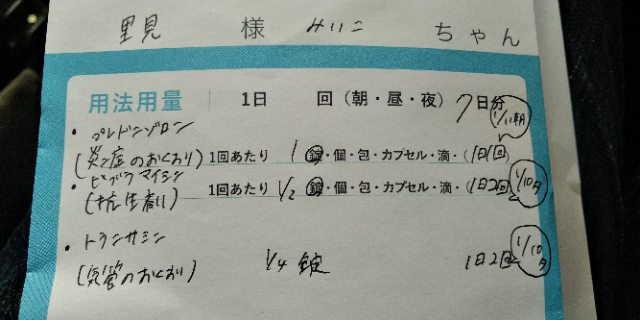 里見 様 みいこ ちゃん
用法用量 1日 回(朝・昼・夜) 7日分
・プレドニゾロン 1/11朝
(炎症のおくすり) 1回あたり 1 錠・個・包・カプセル・滴・(1日1回)
・ビブラマイシン 1回あたり 1/2 錠・個・包・カプセル・滴・(1日2回) 1/10夕
(抗生剤)
・トランサミン
(気管のおくすり) 1/4 錠 1日2回 1/10夕